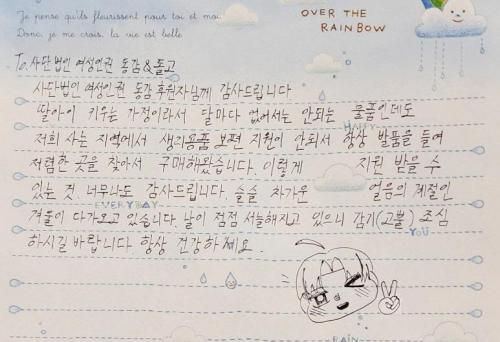 Je pense qu'ils fleurissent pour toi et moi.
Donc, je me crois, la vie est belle.
OVER THE
RAINBOW
To. 사단법인 여성인권 동감 & 돌고
사단법인 여성인권 동감 후원자님께 감사드립니다
딸아이 키우는 가정이라서 달마다 없어서는 안되는 물품인데도
저희 사는 지역에서 생리용품 보편 지원이 안되서 항상 발품을 들여
저렴한 곳을 찾아서 구매해왔습니다. 이렇게 지원 받을 수
있는 것 너무나도 감사드립니다. 슬슬 차가운 얼음의 계절인
EVERYDAY
겨울이 다가오고 있습니다. 날이 점점 서늘해지고 있으니 감기(고뿔) 조심
YOU
하시길 바랍니다. 항상 건강하세요.
RAIN